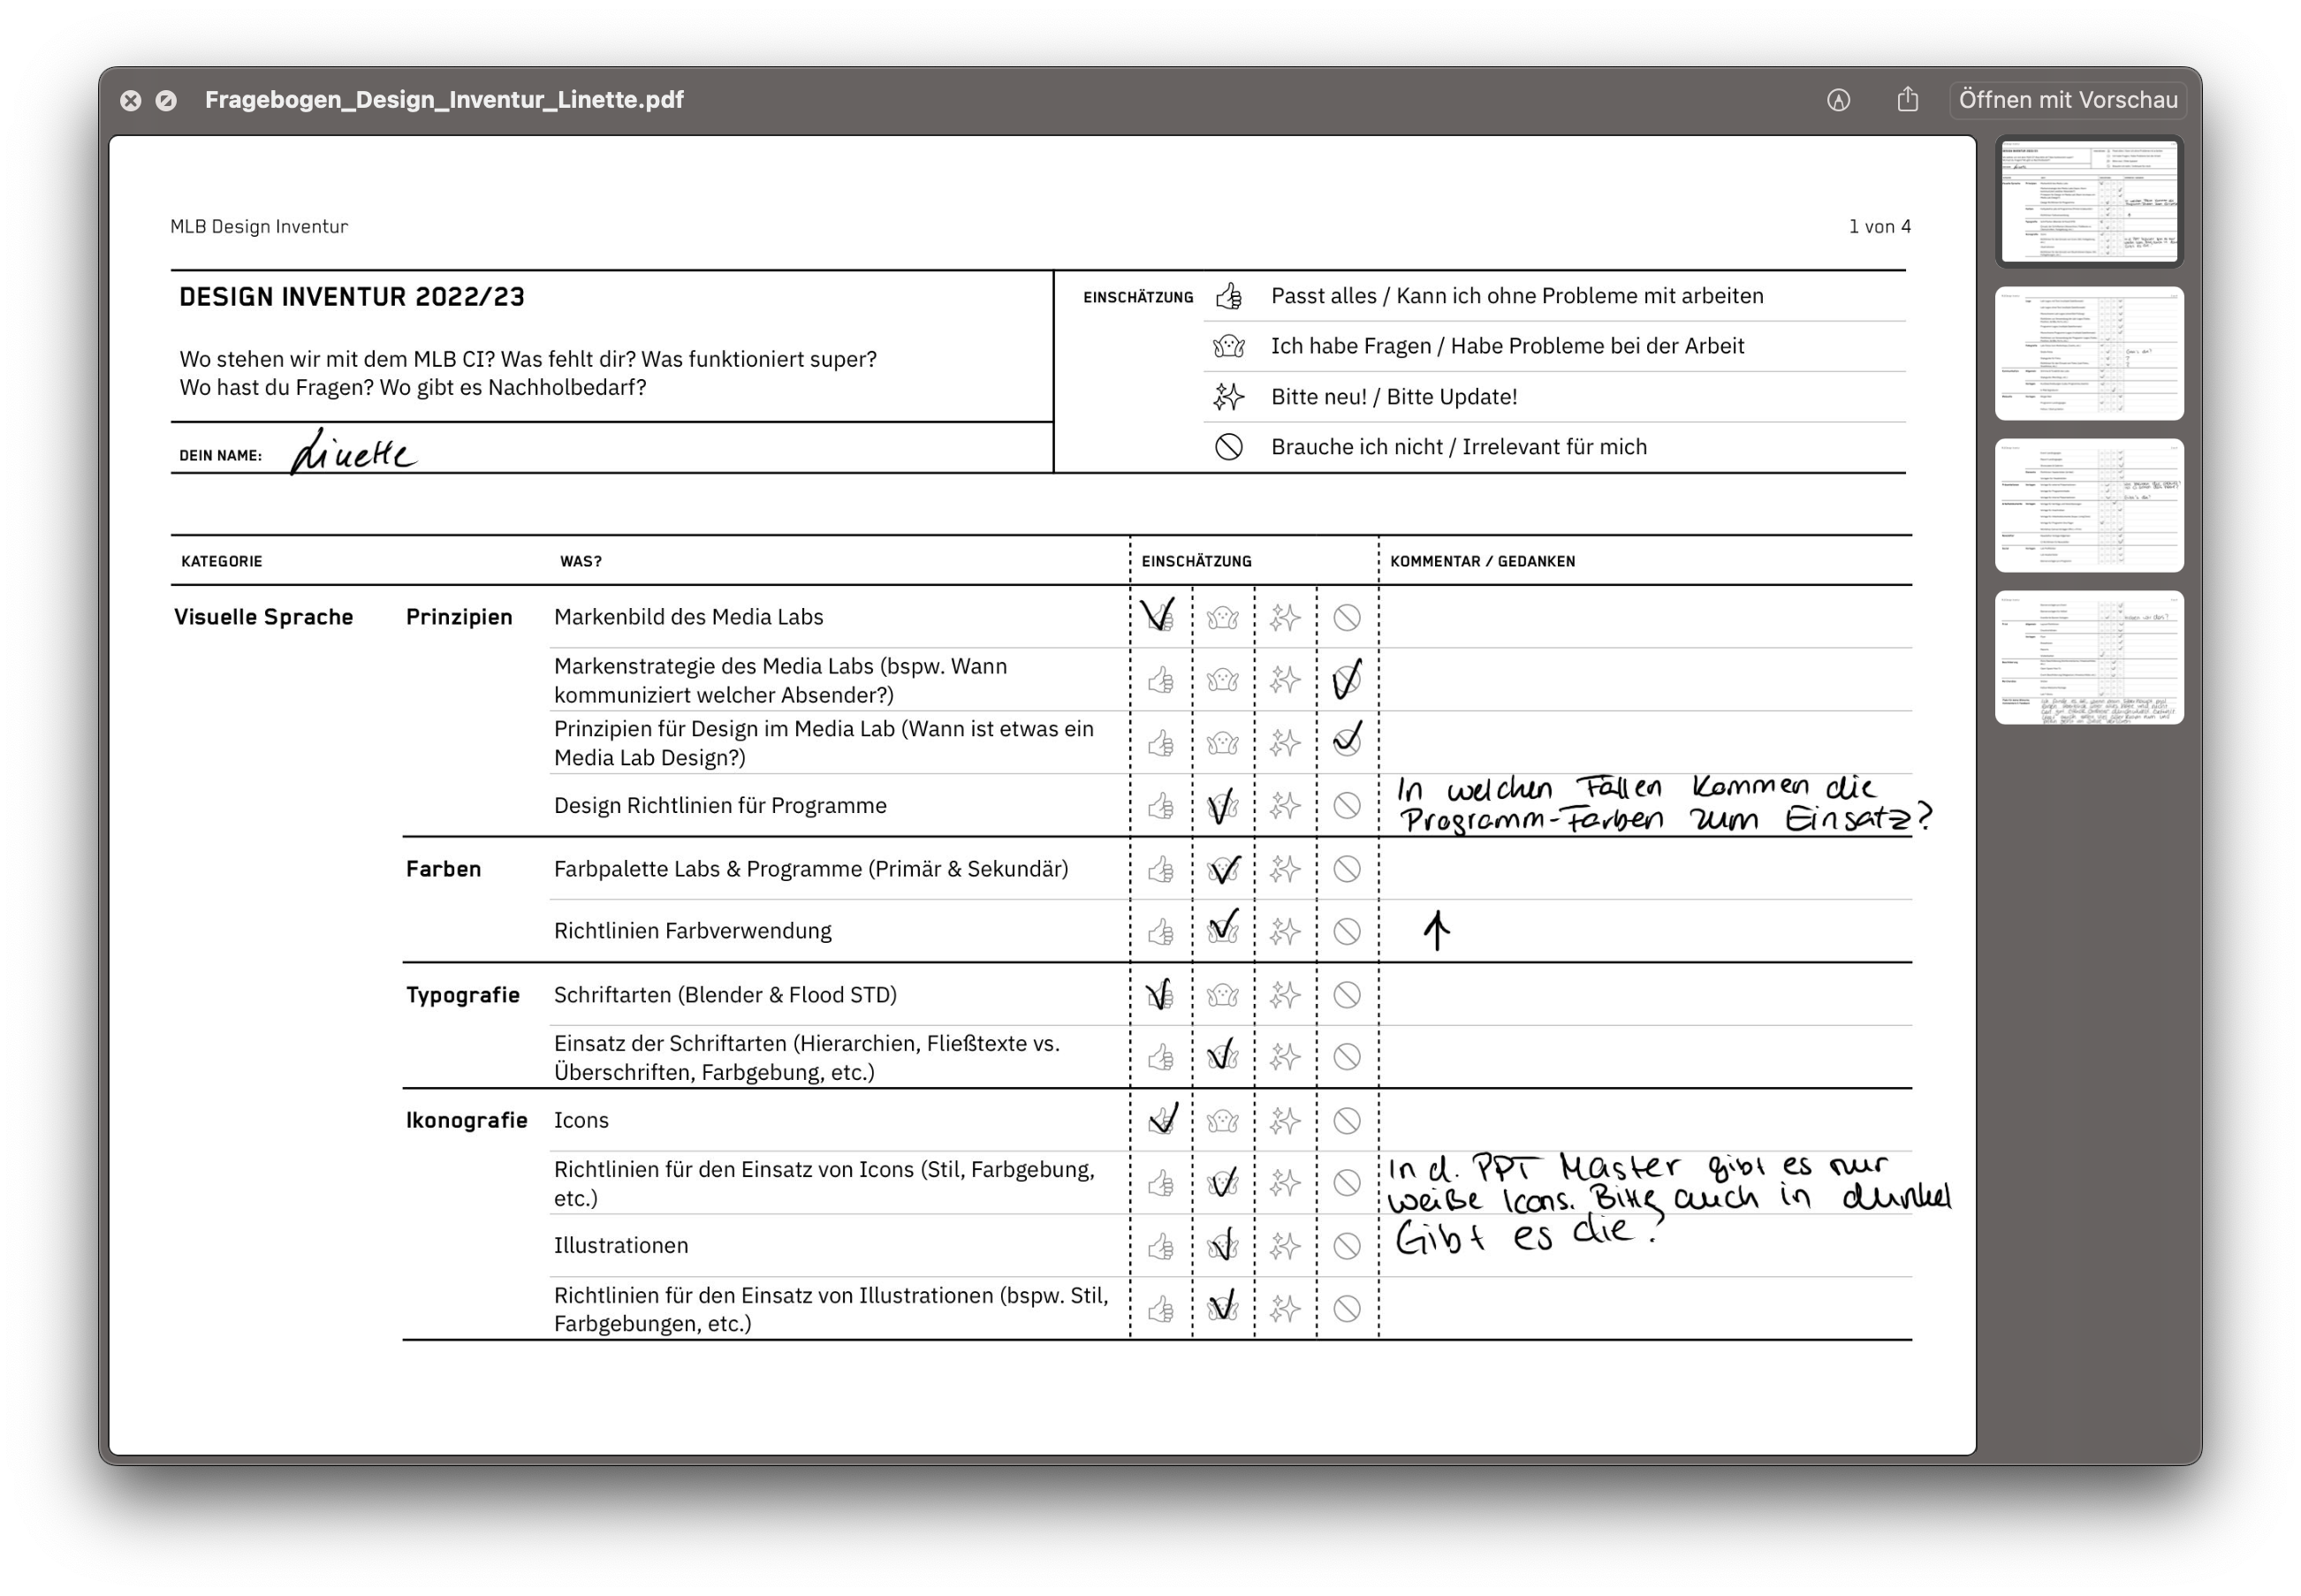 Fragebogen_Design_Inventur_Linette.pdf
Öffnen mit Vorschau
MLB Design Inventur
1 von 4
DESIGN INVENTUR 2022/23
Wo stehen wir mit dem MLB CI? Was fehlt dir? Was funktioniert super?
Wo hast du Fragen? Wo gibt es Nachholbedarf?
DEIN NAME: Linette
EINSCHÄTZUNG
Passt alles / Kann ich ohne Probleme mit arbeiten
Ich habe Fragen / Habe Probleme bei der Arbeit
Bitte neu! / Bitte Update!
Brauche ich nicht / Irrelevant für mich
KATEGORIE WAS? EINSCHÄTZUNG KOMMENTAR / GEDANKEN
Visuelle Sprache Prinzipien Markenbild des Media Labs
Markenstrategie des Media Labs (bspw. Wann
kommuniziert welcher Absender?)
Prinzipien für Design im Media Lab (Wann ist etwas ein
Media Lab Design?)
Design Richtlinien für Programme
In welchen Fällen kommen die
Programm-Farben zum Einsatz?
Farben Farbpalette Labs & Programme (Primär & Sekundär)
Richtlinien Farbverwendung ↑
Typografie Schriftarten (Blender & Flood STD)
Einsatz der Schriftarten (Hierarchien, Fließtexte vs.
Überschriften, Farbgebung, etc.)
Ikonografie Icons
Richtlinien für den Einsatz von Icons (Stil, Farbgebung,
etc.)
In d. PPT Master gibt es nur
weiße Icons. Bitte auch in dunkel
Illustrationen Gibt es die?
Richtlinien für den Einsatz von Illustrationen (bspw. Stil,
Farbgebungen, etc.)